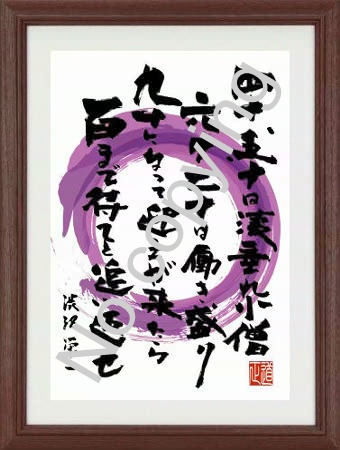 四十、五十は洟垂れ小僧
六十、七十は働き盛り
九十になって迎えが来たら
百まで待てと追い返せ
渋沢栄一
No copying